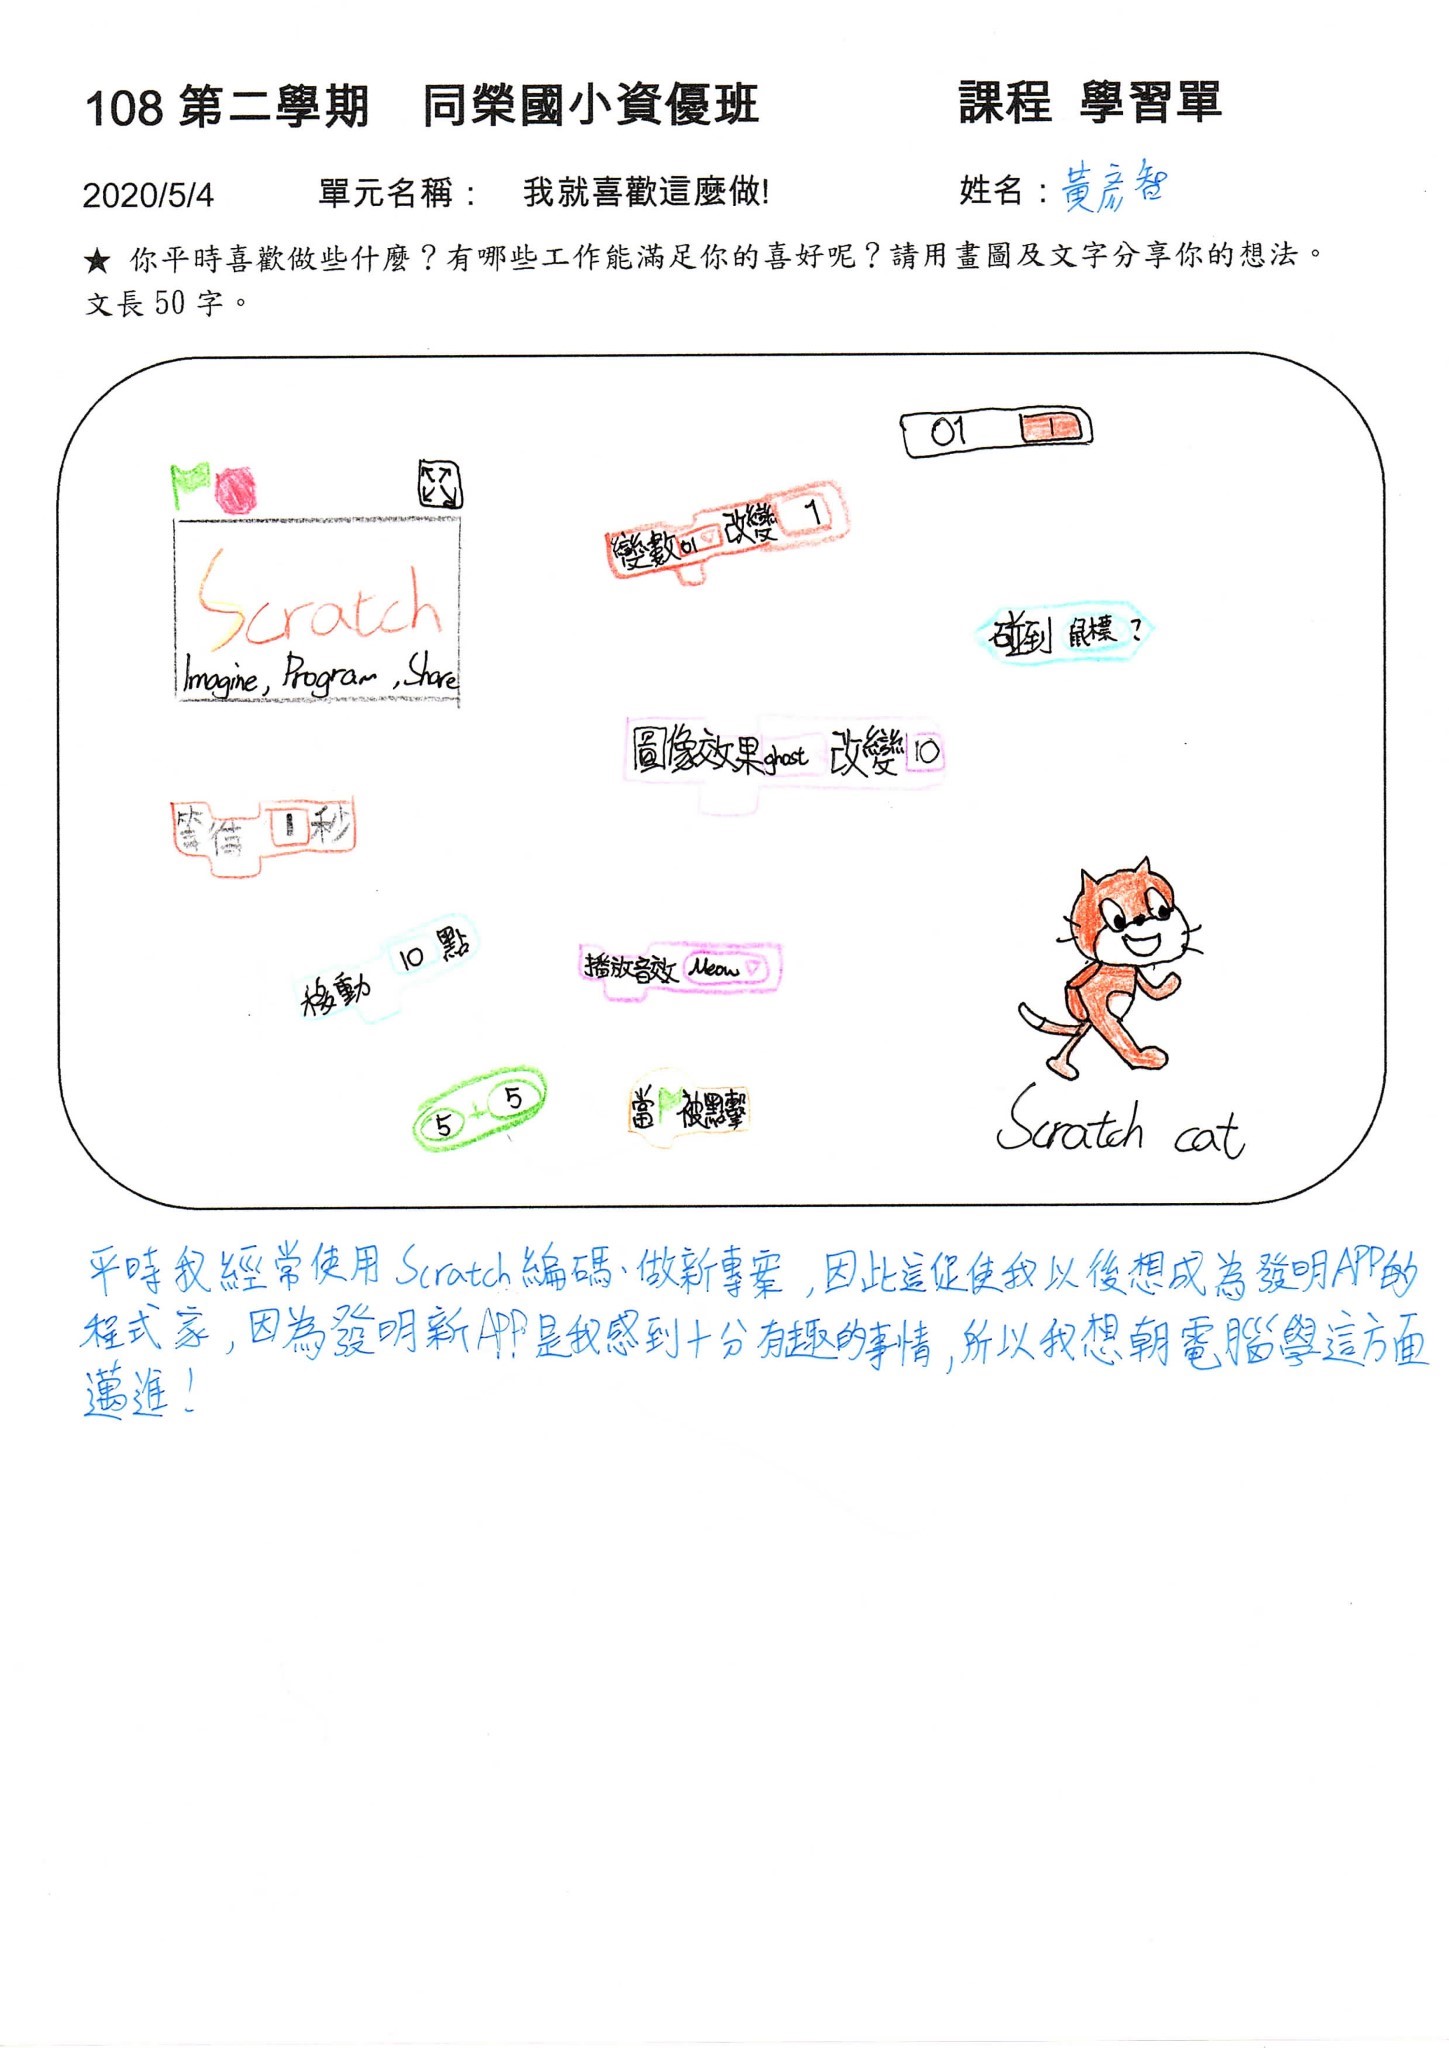 108 第二學期 同榮國小資優班 課程 學習單
2020/5/4 單元名稱： 我就喜歡這麼做! 姓名：黃彥智
★ 你平時喜歡做些什麼？有哪些工作能滿足你的喜好呢？請用畫圖及文字分享你的想法。
文長 50 字。
01 1
變數 01 改變 1
Scratch
Imagine, Program, Share
碰到 鼠標 ?
圖像效果 ghost 改變 10
等待 1 秒
移動 10 點
播放音效 Meow
5 + 5
當 被點擊
Scratch cat
平時我經常使用Scratch編碼、做新專案,因此這促使我以後想成為發明APP的
程式家,因為發明新APP是我感到十分有趣的事情,所以我想朝電腦學這方面
邁進!